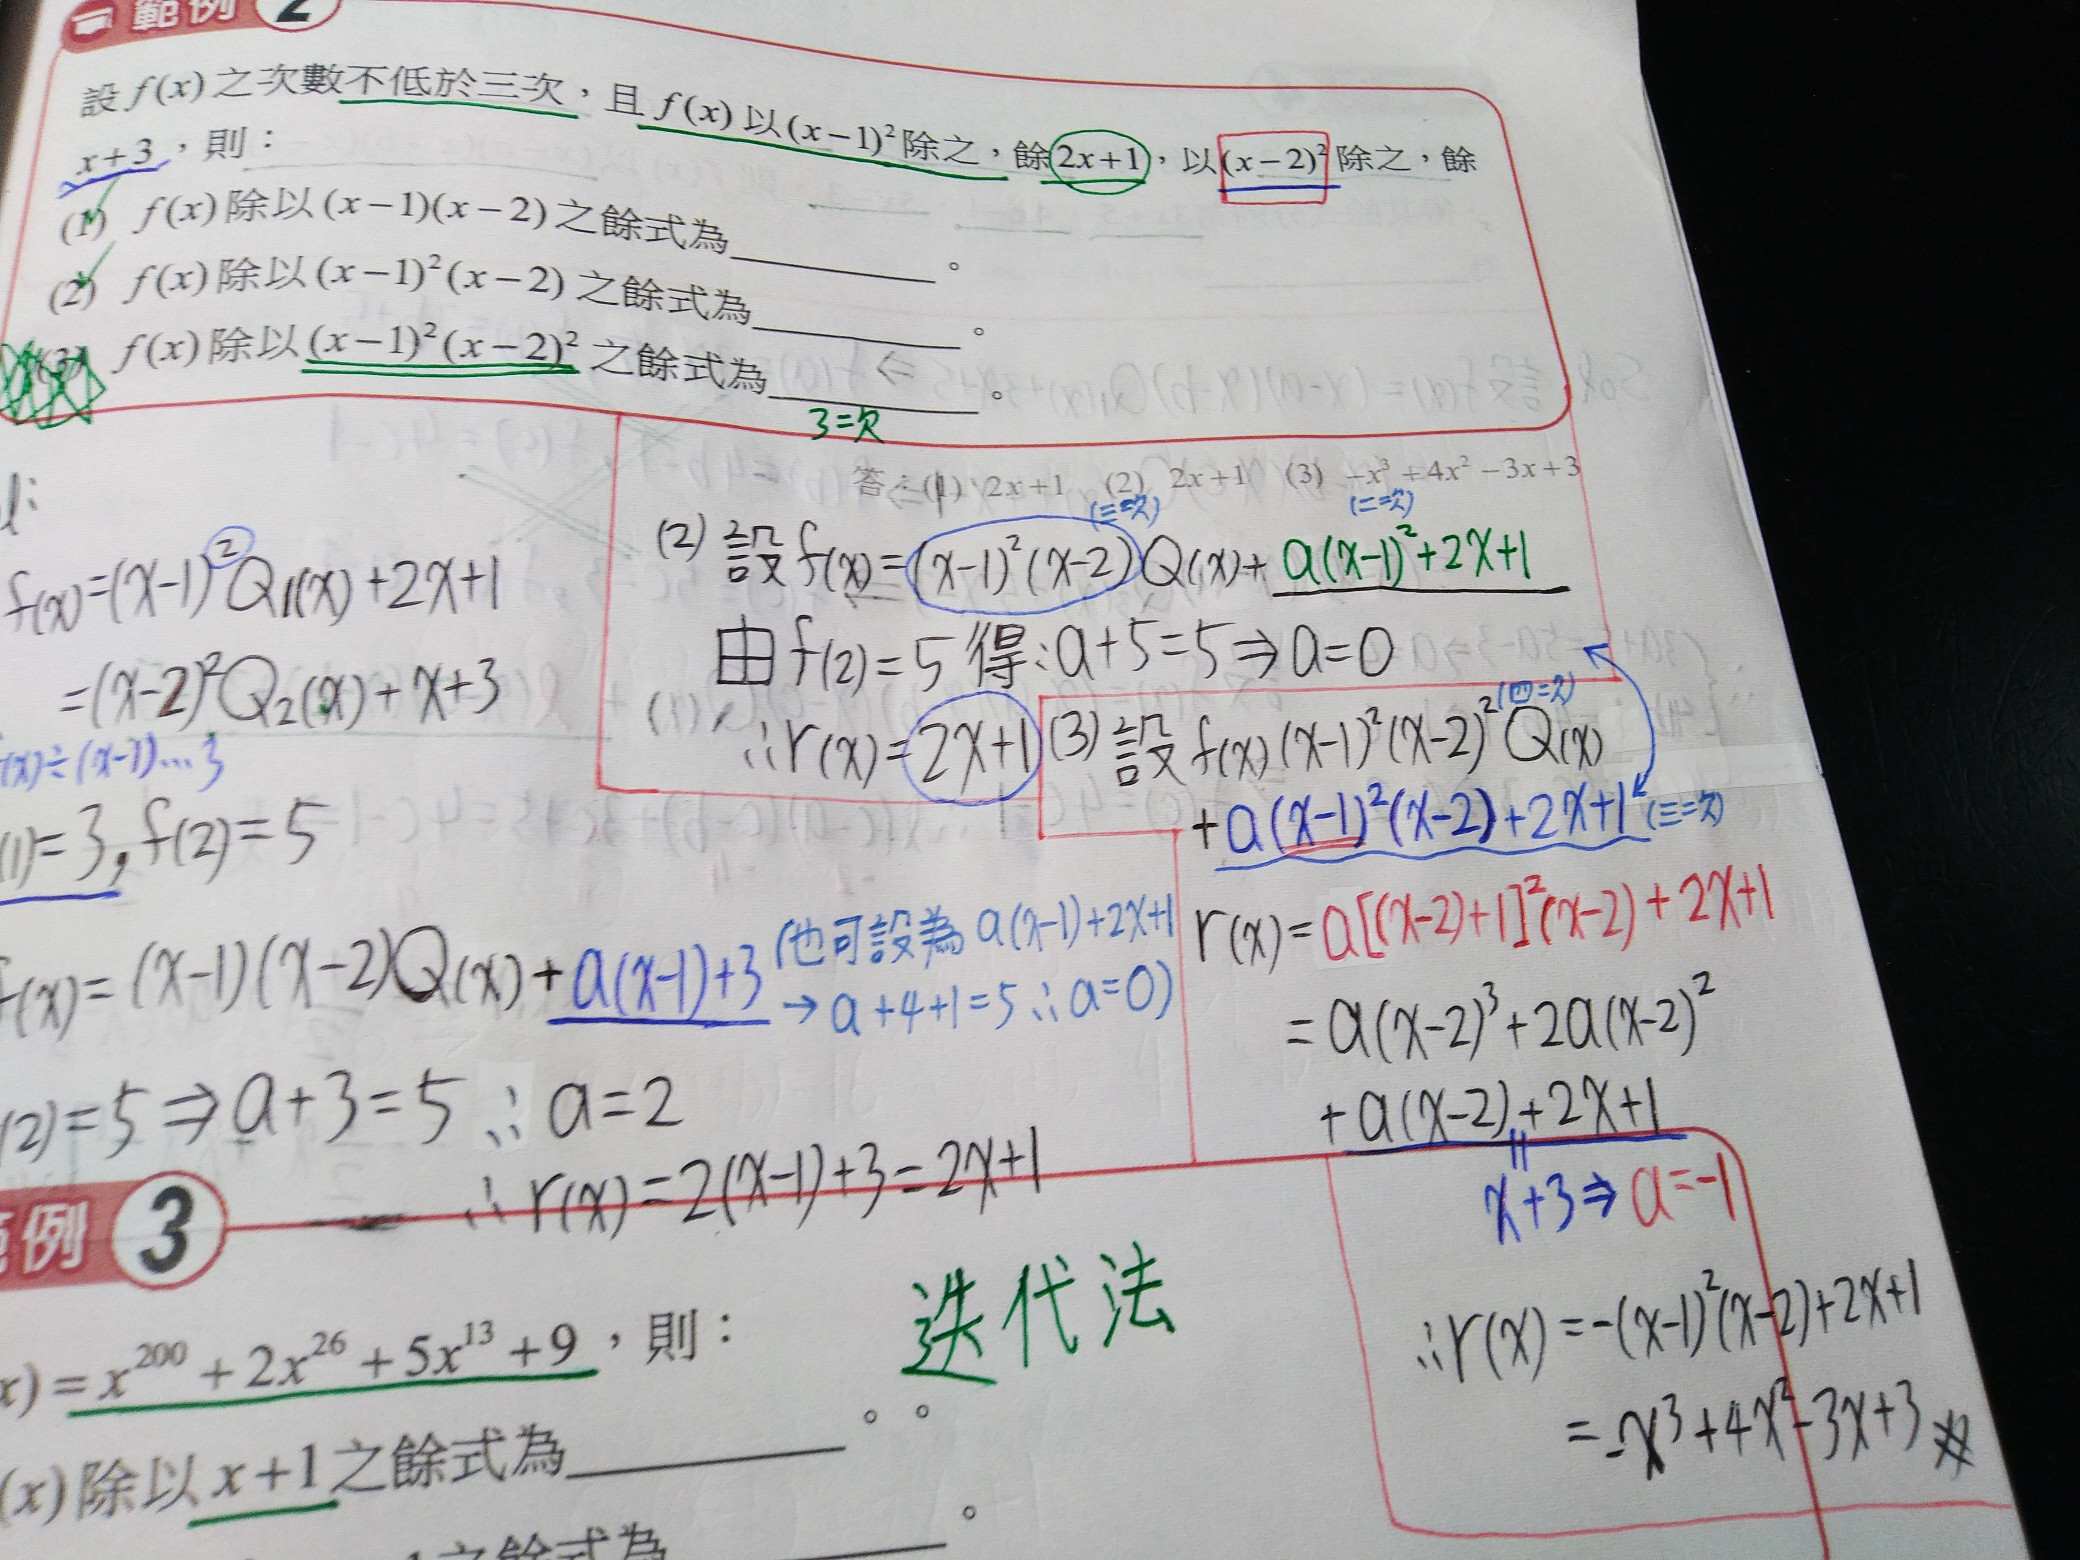 範例 2
設 f(x) 之次數不低於三次，且 f(x) 以 (x−1)² 除之，餘 2x+1，以 (x−2)² 除之，餘
x+3，則：
(1) f(x) 除以 (x−1)(x−2) 之餘式為________。
(2) f(x) 除以 (x−1)²(x−2) 之餘式為________。
(3) f(x) 除以 (x−1)²(x−2)² 之餘式為________。
3=次
答：(1) 2x+1 (2) 2x+1 (3) −x³+4x²−3x+3
f(x)=(x-1)²Q₁(x)+2x+1
=(x-2)²Q₂(x)+x+3
(x)÷(x-1)…3
(1)=3, f(2)=5
f(x)=(x-1)(x-2)Q(x)+a(x-1)+3
(也可設為 a(x-1)+2x+1
→a+4+1=5∴a=0)
(2)=5⇒a+3=5 ∴a=2
∴r(x)=2(x-1)+3=2x+1
(三=次) (二=次)
(2) 設f(x)=(x-1)²(x-2)Q(x)+a(x-1)²+2x+1
由f(2)=5得:a+5=5⇒a=0
∴r(x)=2x+1
(四=次)
(3) 設f(x)(x-1)²(x-2)²Q(x)
+a(x-1)²(x-2)+2x+1 (三=次)
r(x)=a[(x-2)+1]²(x-2)+2x+1
=a(x-2)³+2a(x-2)²
+a(x-2)+2x+1
=
x+3⇒a=-1
∴r(x)=-(x-1)²(x-2)+2x+1
=-x³+4x²-3x+3
範例 3
迭代法
x)=x²⁰⁰+2x²⁶+5x¹³+9，則：
(x)除以 x+1 之餘式為________。。
之餘式為________。